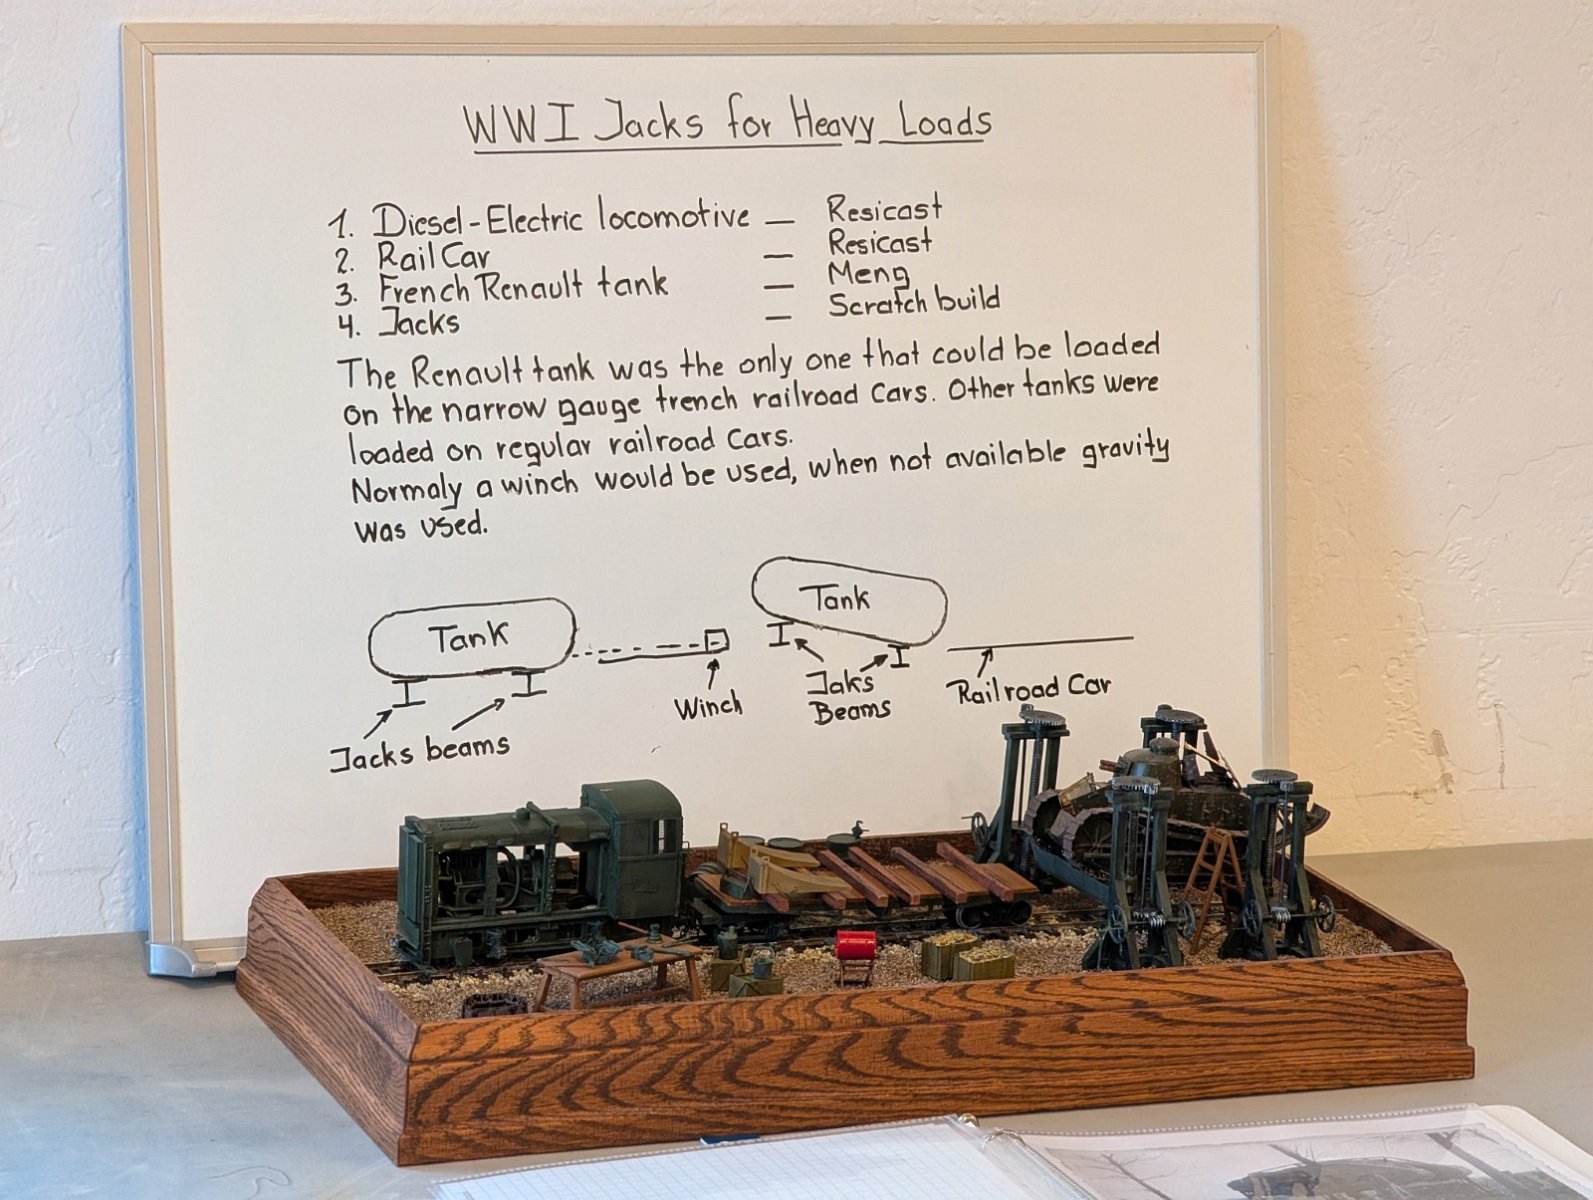 WWI Jacks for Heavy Loads
1. Diesel-Electric locomotive — Resicast
2. Rail Car — Resicast
3. French Renault tank — Meng
4. Jacks — Scratch build
The Renault tank was the only one that could be loaded
on the narrow gauge trench railroad Cars. Other tanks were
loaded on regular railroad Cars.
Normaly a winch would be used, when not available gravity
was used.
Tank
Winch
Jacks beams
Tank
Jaks
Beams
Railroad Car